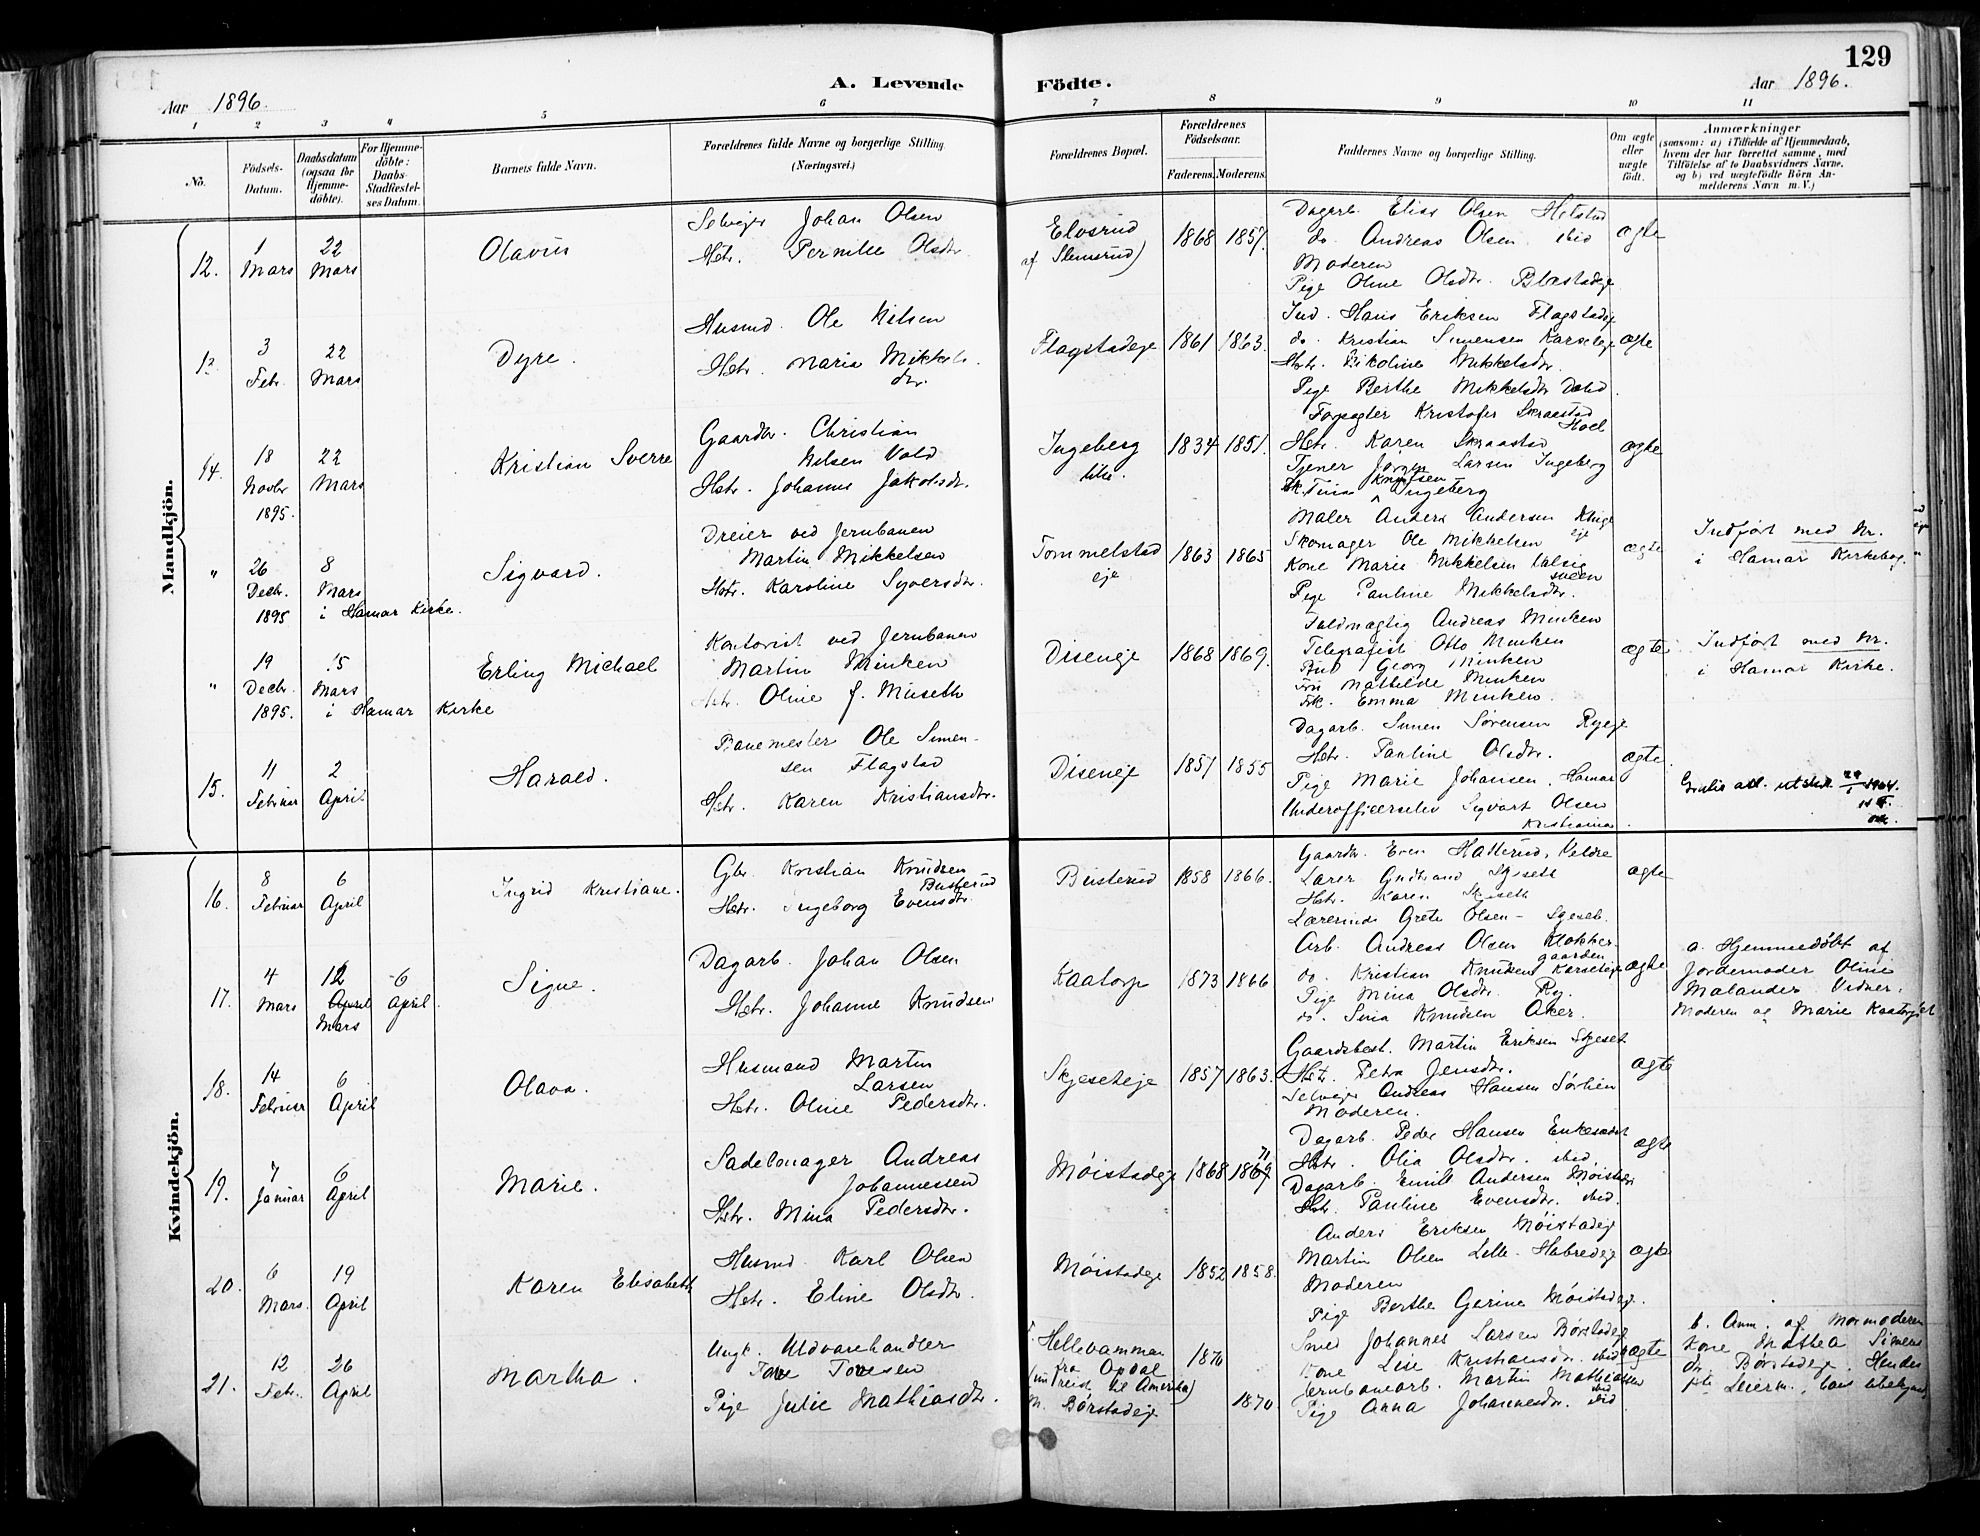 129
A. Levende Födte.
Aar 1896.
Aar 1896.
1 2 3 4 5 6 7 8 9 10 11
No.
Födsels-Datum.
Daabsdatum (ogsaa for Hjemme-döbte).
For Hjemme-döbte: Daabs-Stadfæstel-ses Datum.
Barnets fulde Navn.
Forældrenes fulde Navne og borgerlige Stilling. (Næringsvei.)
Forældrenes Bopæl.
Forældrenes Födselsaar.
Faderens. Moderens.
Faddernes Navne og borgerlige Stilling.
Om ægte eller uægte födt.
Anmærkninger
(saasom: a) i Tilfælde af Hjemmedaab, hvem der har forrettet samme, med Tilföielse af to Daabsvidners Navne, og b) ved uægtefödte Börn Anmelderens Navn m. V.)
Mandkjön.
12. 1 Mars 22 Mars
Olavus
Selveier Johan Olsen
Hstr. Pernille Olsdtr.
Elvsrud
af Slemsrud)
1868 1857.
Dagarb. Elias Olsen
do. Andreas Olsen ibid
Moderen
Pige Oline Olsdtr.
ægte
13. 3 Febr. 22 Mars
Dyre.
Husmd. Ole Nilsen
Hstr. Maria Mikkels
dtr.
Flagstadeje
1861 1863.
Ind. Hans Eriksen Flagstadeje
do. Kristian Simensen
Hstr. Nikoline Mikkelsdtr.
Pige Berthe Mikkelsdtr
ægte
14. 18 Novbr 1895. 22 Mars
Kristian Sverre
Gaardbr. Christian
Nilsen Vold
Hstr. Johanne Jakobsdtr.
Ingeberg
lille.
1834 1851.
Forpagter Kristofer Skraastad
Hoel
Hstr. Karen Skraastad
Tjener Jørgen Larsen Ingeberg
Frk. Tina Knutsen Ingeberg
ægte
" 26 Decbr. 1895 8 Mars
i Hamar Kirke.
Sigvard.
Dreier ved Jernbanen
Martin Mikkelsen
Hstr. Karoline Syversdtr.
Tommelstad
eje
1863 1865
Maler Anders Andersen
eje
Skomager Ole Mikkelsen
Kone Marie Mikkelsen
Pige Pauline Mikkelsdtr.
ægte
Indført med Nr.
i Hamar Kirkebog.
" 19 Decbr. 1895. 15 Mars
i Hamar Kirke
Erling Michael
Kontorist ved Jernbanen
Martin Minken
Hstr. Oline f. Museth
Diseneje
1868 1869.
Fuldmægtig Andreas Minken
Telegrafist Otto Minken
Georg Minken
Fru Mathilde Minken
Frk. Emma Minken.
ægte
Indført med Nr.
i Hamar Kirke.
15. 11 Februar 2 April
Harald.
Banemester Ole Simen-
sen Flagstad
Hstr. Karen Kristiansdtr.
Diseneje
1851 1855
Dagarb. Simen Sørensen Ryeje
Hstr. Pauline Olsdtr.
Pige Marie Johansen, Hamar
Underofficerselev Sigvart Olsen
Kristiania.
ægte.
Gratis att. utstedt 1904.
Kvindekjön.
16. 8 Februar 6 April
Ingrid Kristiane.
Gbr. Kristian Knudsen
Busterud
Hstr. Ingeborg Evensdtr.
Busterud
1858 1866.
Gaardbr. Even Hatterud, Veldre
Lærer Gudbrand Skjeseth
Hstr. Karen Skjeseth
Lærerinde Grete Olsen
ægte
17. 4 Mars 12 April Mars 6 April
Signe.
Dagarb. Johan Olsen
Hstr. Johanne Knudsen
Kaatorp
1873 1866
Arb. Andreas Olsen Klokker-
gaarden
do. Kristian Knudsen
Pige Mina Olsdtr. Ry.
do. Sina Knudsen Aker.
ægte
a. Hjemmedøbt af
Jordemoder Oline
Malander. Vidner:
Moderen og Marie
18. 14 Februar 6 April
Olava.
Husmand Martin
Larsen
Hstr. Oline Pedersdtr.
Skjeseteje
1857 1863.
Gaardbest. Martin Eriksen
Hstr. Petra Jensdtr.
Selveier Andreas Hansen Sørlien
Moderen.
ægte
19. 7 Januar 6 April
Marie.
Sadelmager Andreas
Johannessen
Hstr. Mina Pedersdtr.
Møistadeje
1868 1869 71
Dagarb. Peder Hansen
Hstr. Olia Olsdtr. ibid
Dagarb. Emil Andersen Møistadeje
Hstr. Pauline Evensdtr. ibid.
ægte
20. 6 Mars. 19 April
Karen Elisabeth
Husmd Karl Olsen
Hstr. Eline Olsdtr.
Møistadeje
1852 1858.
Anders Eriksen Møistadeje
Martin Olsen
Moderen
Pige Berthe Gerine Møistadeje
ægte
21. 12 Febr. 26 April
Martha.
Ungk. Uldvarehandler
Tore Toresen
Pige Julie Mathiasdtr.
F. Hellevammen
fra Opdal
(nu reist til Amerika)
M. Børstadeje
1870
1870.
Smed Johannes Larsen Børstadeje
Kone Lise Kristiansdtr. ibid
Jernbanearb. Martin Mathiassen
Pige Anna Johannesdtr. ibid
uægte
b. Anm. af Mormoderen
Kone Mathea Simens
dtr. Børstadeje. Hendes